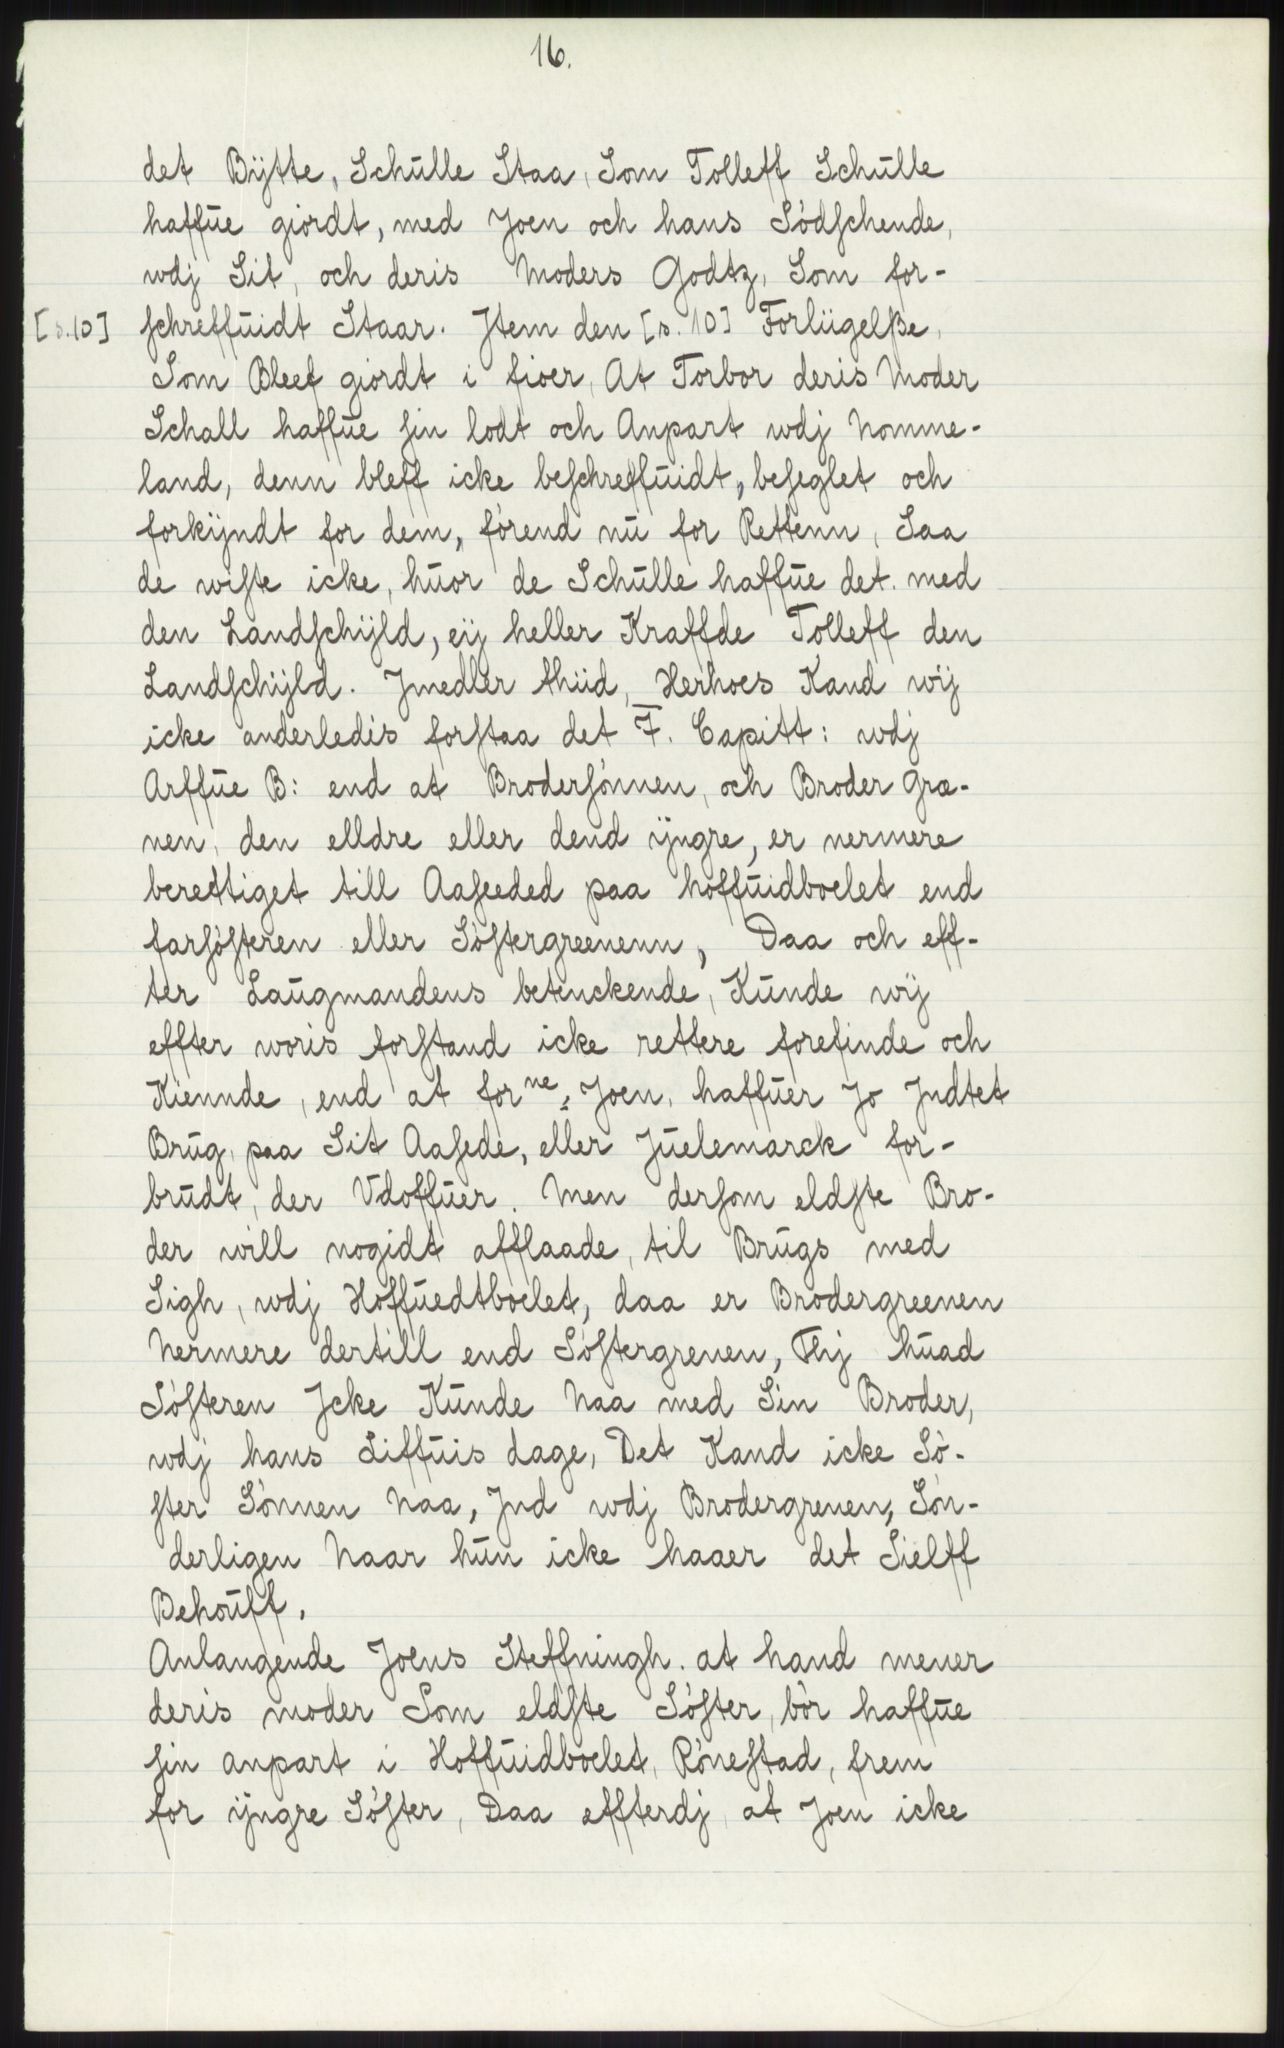 16.
det Bÿtte, Schulle Staa, Som Tolleff Schulle
haffue giordt, med Joen och hans Södschende,
wdj Sit, och deris Moders Godtz, Som for-
[s.10] schreffuidt Staar. Jtem den [s. 10] Forlügelße,
Som Bleef giordt i fioer, At Torbor deris Moder
Schall haffue sin lodt och Anpart wdj Nomme-
land, denn bleff icke beschreffuidt, beseglet och
forkÿndt for dem, förend nu for Rettenn, Saa
de wiste icke, huor de Schulle haffue det med
den Landschÿld, eÿ heller Kraffde Tolleff den
Landschÿld. Jmedler thiid, Herhoes Kand wÿ
icke anderledis forstaa det 7. Capitt: wdj
Arffue B: end at Brodersönnen, och Broder Gre-
nen, den elldre eller dend ÿngre, er nermere
berettiget till Aaseeded paa hoffuidboelet end
farsösteren eller Söstergreenenn, Daa och eff-
ter Laugmandens betenckende, Kunde wÿ
effter woris forstand icke rettere forefinde och
Kiennde, end at forne: Joen, haffuer Jo Jndtet
Brug, paa Sit Aasede, eller Juelemarck for-
brudt, der Vdoffuer. Men dersom eldste Bro-
der will nogidt afflaade, til Brugs med
Sigh, wdj Hoffuedtboelet, daa er Brodergreenen
Nermere dertill end Söstergrenen, Thj huad
Sösteren Jcke Kunde Naa med Sin Broder,
wdj hans Liffuis dage, Det Kand icke Sö-
ster Sönnen Naa, Jnd wdj Brodergrenen, Sön-
derligen Naar hun icke haaer det Sielff
Behouff.
Anlangende Joens Steffningh. at hand mener
deris moder Som eldste Söster, bör haffue
sin anpart i Hoffuidboelet, Rönestad, frem
for ÿngre Söster, Daa effterdj, at Joen icke